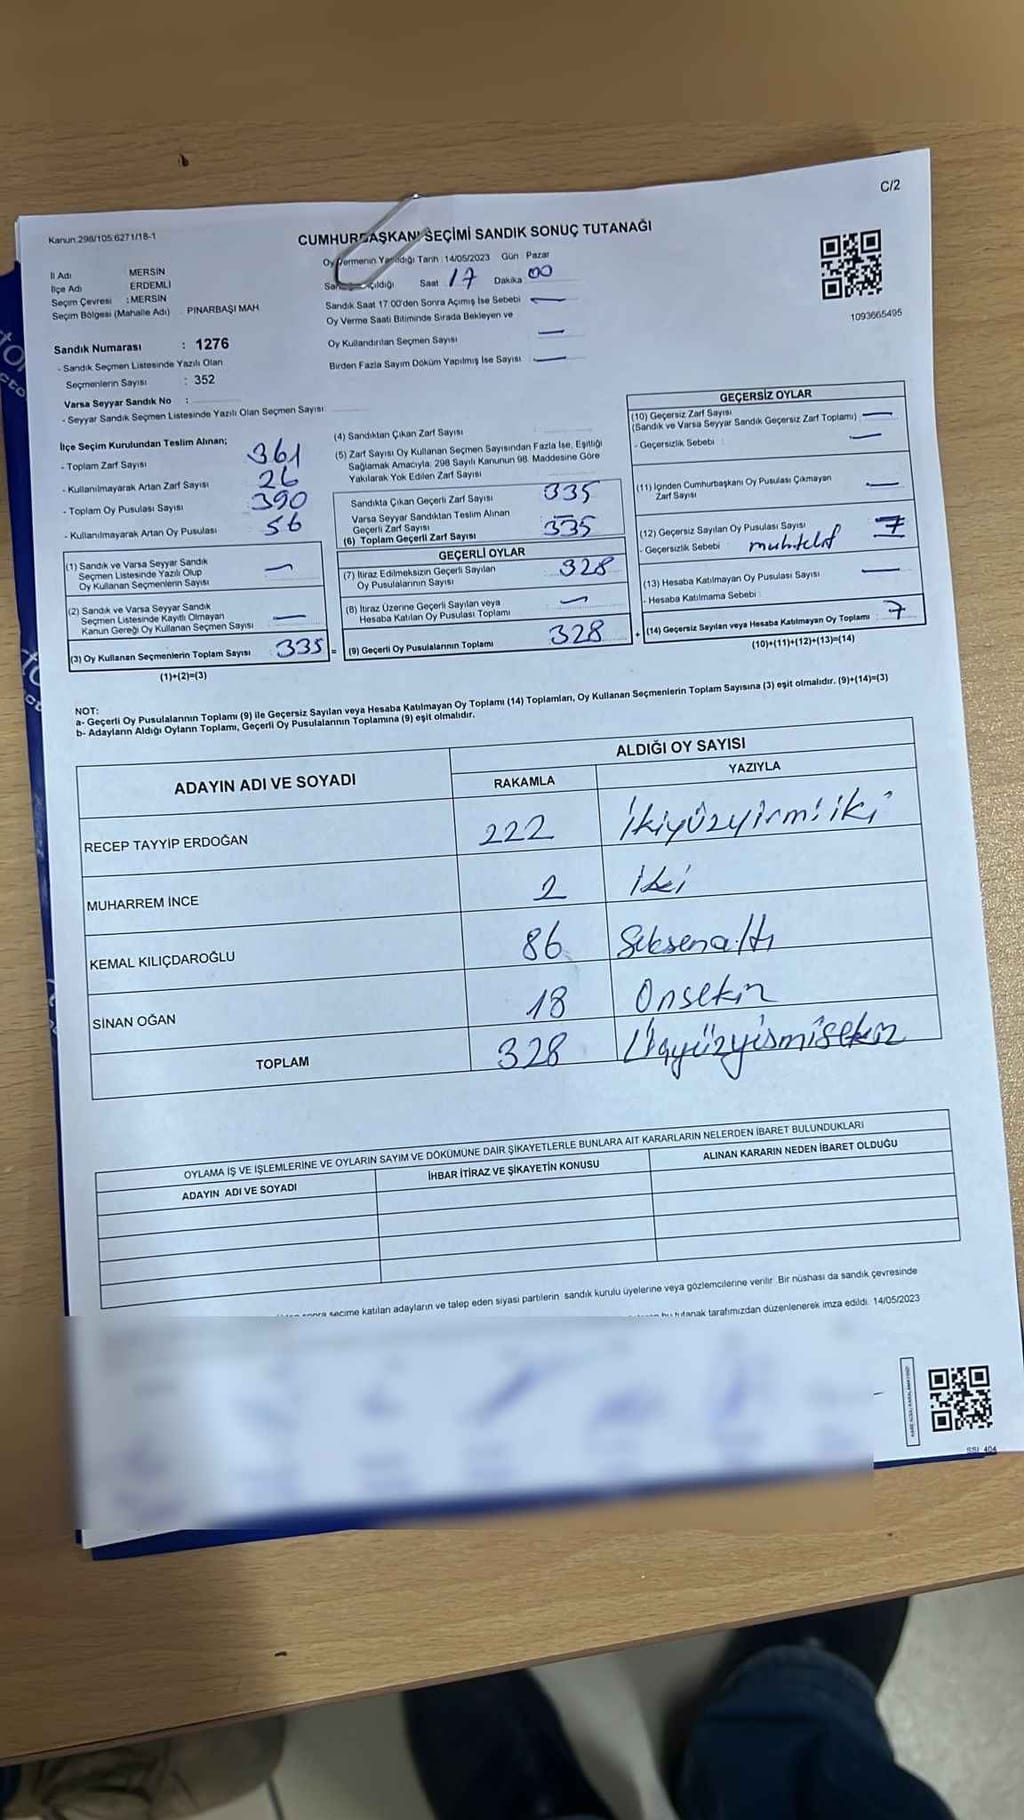 C/2
Kanun:298/105.6271/18-1
CUMHURBAŞKANI SEÇİMİ SANDIK SONUÇ TUTANAĞI
İl Adı MERSİN
İlçe Adı ERDEMLİ
Seçim Çevresi :MERSİN
Seçim Bölgesi (Mahalle Adı) PINARBAŞI MAH
Oy Vermenin Yapıldığı Tarih : 14/05/2023 Gün Pazar
Saat 17 Dakika 00
Sandık Saat 17.00'den Sonra Açımış İse Sebebi —
Oy Verme Saati Bitiminde Sırada Bekleyen ve
Oy Kullandırılan Seçmen Sayısı —
Birden Fazla Sayım Döküm Yapılmış İse Sayısı —
1093665495
Sandık Numarası : 1276
- Sandık Seçmen Listesinde Yazılı Olan
Seçmenlerin Sayısı : 352
Varsa Seyyar Sandık No :
- Seyyar Sandık Seçmen Listesinde Yazılı Olan Seçmen Sayısı:
İlçe Seçim Kurulundan Teslim Alınan;
- Toplam Zarf Sayısı 361
- Kullanılmayarak Artan Zarf Sayısı 26
- Toplam Oy Pusulası Sayısı 390
- Kullanılmayarak Artan Oy Pusulası 56
(1) Sandık ve Varsa Seyyar Sandık
Seçmen Listesinde Yazılı Olup
Oy Kullanan Seçmenlerin Sayısı —
(2) Sandık ve Varsa Seyyar Sandık
Seçmen Listesinde Kayıtlı Olmayan
Kanun Gereği Oy Kullanan Seçmen Sayısı —
(3) Oy Kullanan Seçmenlerin Toplam Sayısı 335 =
(1)+(2)=(3)
(4) Sandıktan Çıkan Zarf Sayısı
(5) Zarf Sayısı Oy Kullanan Seçmen Sayısından Fazla İse, Eşitliği
Sağlamak Amacıyla; 298 Sayılı Kanunun 98. Maddesine Göre
Yakılarak Yok Edilen Zarf Sayısı
Sandıkta Çıkan Geçerli Zarf Sayısı 335
Varsa Seyyar Sandıktan Teslim Alınan
Geçerli Zarf Sayısı —
(6) Toplam Geçerli Zarf Sayısı 335
GEÇERLİ OYLAR
(7) İtiraz Edilmeksizin Geçerli Sayılan
Oy Pusulalarının Sayısı 328
(8) İtiraz Üzerine Geçerli Sayılan veya
Hesaba Katılan Oy Pusulası Toplamı —
(9) Geçerli Oy Pusulalarının Toplamı 328 +
GEÇERSİZ OYLAR
(10) Geçersiz Zarf Sayısı
(Sandık ve Varsa Seyyar Sandık Geçersiz Zarf Toplamı) —
- Geçersizlik Sebebi —
(11) İçinden Cumhurbaşkanı Oy Pusulası Çıkmayan
Zarf Sayısı —
(12) Geçersiz Sayılan Oy Pusulası Sayısı 7
- Geçersizlik Sebebi : muhtelif
(13) Hesaba Katılmayan Oy Pusulası Sayısı —
- Hesaba Katılmama Sebebi :
(14) Geçersiz Sayılan veya Hesaba Katılmayan Oy Toplamı 7
(10)+(11)+(12)+(13)=(14)
NOT:
a- Geçerli Oy Pusulalarının Toplamı (9) ile Geçersiz Sayılan veya Hesaba Katılmayan Oy Toplamı (14) Toplamları, Oy Kullanan Seçmenlerin Toplam Sayısına (3) eşit olmalıdır. (9)+(14)=(3)
b- Adayların Aldığı Oyların Toplamı, Geçerli Oy Pusulalarının Toplamına (9) eşit olmalıdır.
ADAYIN ADI VE SOYADI ALDIĞI OY SAYISI
RAKAMLA YAZIYLA
RECEP TAYYİP ERDOĞAN 222 İkiyüzyirmi iki
MUHARREM İNCE 2 İki
KEMAL KILIÇDAROĞLU 86 Seksenaltı
SİNAN OĞAN 18 Onsekiz
TOPLAM 328 Üçyüzyirmisekiz
OYLAMA İŞ VE İŞLEMLERİNE VE OYLARIN SAYIM VE DÖKÜMÜNE DAİR ŞİKAYETLERLE BUNLARA AİT KARARLARIN NELERDEN İBARET BULUNDUKLARI
ADAYIN ADI VE SOYADI İHBAR İTİRAZ VE ŞİKAYETİN KONUSU ALINAN KARARIN NEDEN İBARET OLDUĞU
sonra seçime katılan adayların ve talep eden siyasi partilerin sandık kurulu üyelerine veya gözlemcilerine verilir. Bir nüshası da sandık çevresinde
bu tutanak tarafımızdan düzenlenerek imza edildi. 14/05/2023
SSI_404